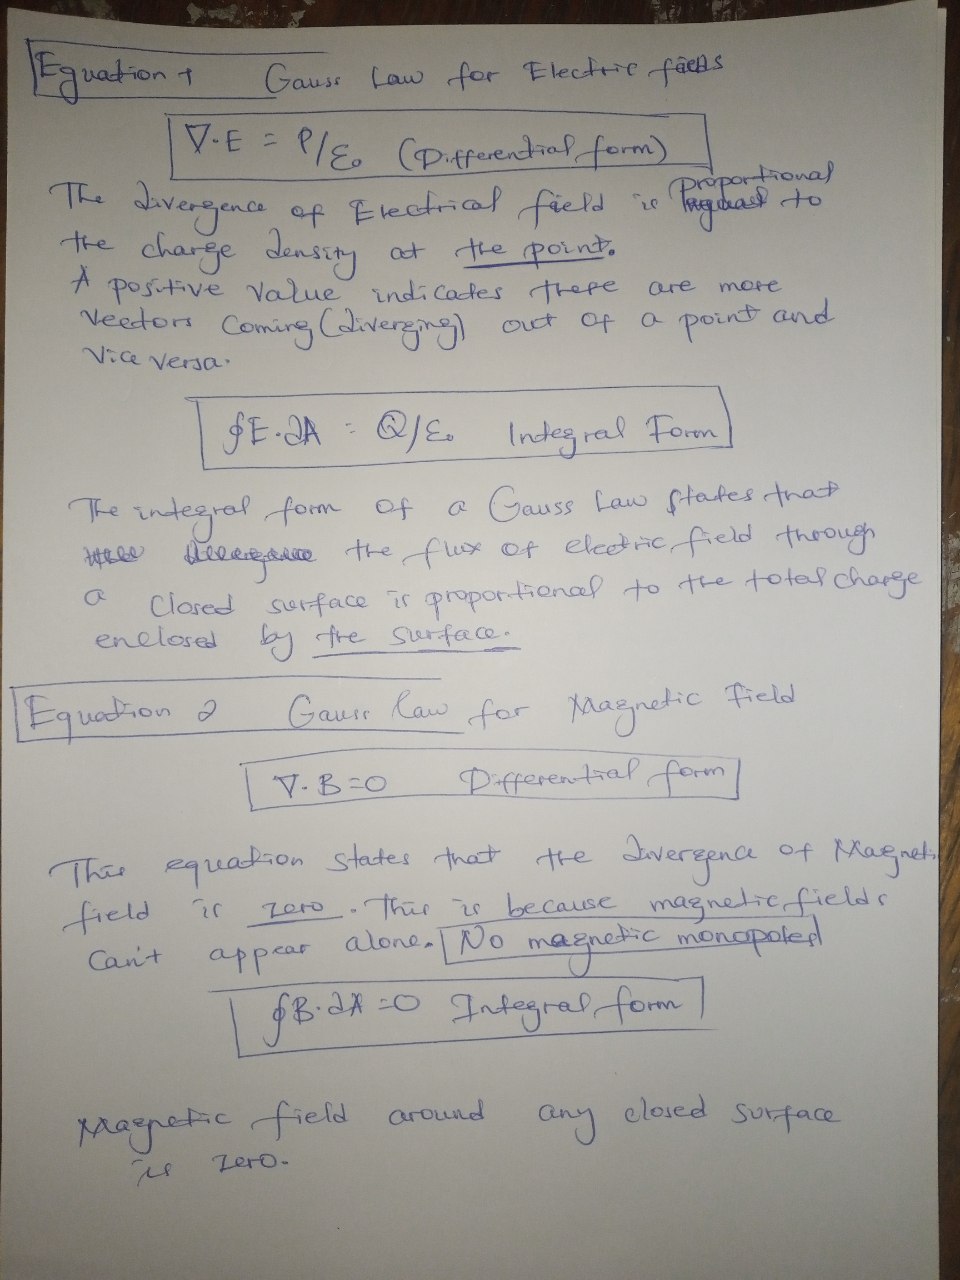 Equation 1 Gauss Law for Electric fields
∇·E = ρ/ε₀ (Differential form)
The divergence of Electrical field is proportional to
the charge density at the point.
A positive value indicates there are more
Vectors coming (diverging) out of a point and
Vice versa.
∮E·∂A = Q/ε₀ Integral Form
The integral form of a Gauss Law states that
the flux of electric field through
a closed surface is proportional to the total charge
enclosed by the surface.
Equation 2 Gauss law for Magnetic field
∇·B=0 Differential form
This equation states that the divergence of Magneti
field is zero. This is because magnetic fields
Can't appear alone. No magnetic monopoles
∮B·∂A=0 Integral form
Magnetic field around any closed surface
is zero.